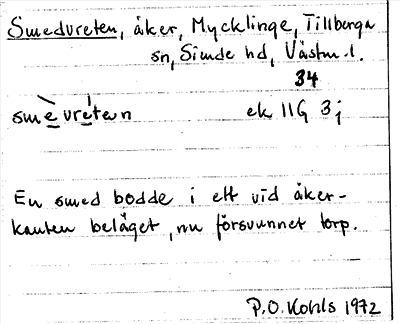 Smedvreten, åker, Mycklinge, Tillberga
sn, Simde hd, Västm. l.
34
smèvrétən ek 11G 3j
En smed bodde i ett vid åker-
kanten beläget, nu försvunnet torp.
P.O. Kohls 1972